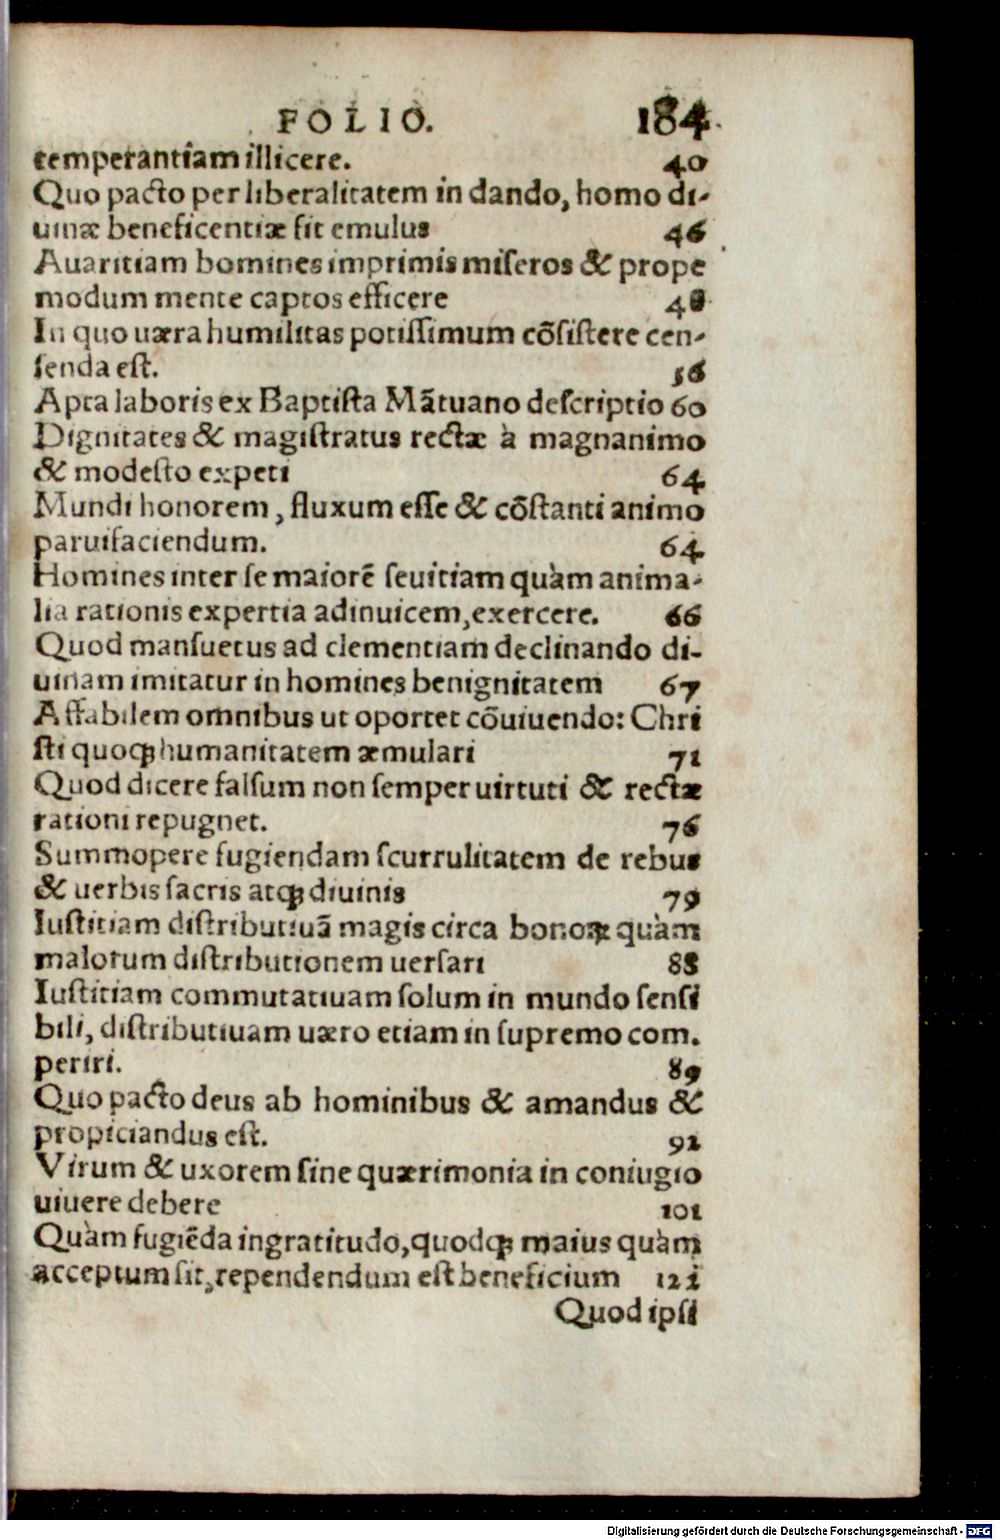 FOLIO. 184.
temperantiam illicere. 40
Quo pacto per liberalitatem in dando, homo di-
uinæ beneficentiæ sit emulus 46
Auaritiam homines imprimis miseros & prope
modum mente captos efficere 48
In quo uæra humilitas potissimum cõsistere cen-
senda est. 56
Apta laboris ex Baptista Mãtuano descriptio 60
Dignitates & magistratus rectæ à magnanimo
& modesto expeti 64
Mundi honorem, fluxum esse & cõstanti animo
paruifaciendum. 64
Homines inter se maiorẽ seuitiam quàm anima-
lia rationis expertia adinuicem, exercere. 66
Quod mansuetus ad clementiam declinando di-
uinam imitatur in homines benignitatem 67
Affabilem omnibus ut oportet cõuiuendo: Chri
sti quoqꝫ humanitatem æmulari 71
Quod dicere falsum non semper uirtuti & rectæ
rationi repugnet. 76
Summopere fugiendam scurrulitatem de rebus
& uerbis sacris atqꝫ diuinis 79
Iustitiam distributiuã magis circa bonoꝝ quàm
malorum distributionem uersari 88
Iustitiam commutatiuam solum in mundo sensi
bili, distributiuam uæro etiam in supremo com.
periri. 89
Quo pacto deus ab hominibus & amandus &
propiciandus est. 92
Virum & uxorem sine quærimonia in coniugio
uiuere debere 101
Quàm fugiẽda ingratitudo, quodqꝫ maius quàm
acceptum sit, rependendum est beneficium 121
Quod ipsi
Digitalisierung gefördert durch die Deutsche Forschungsgemeinschaft - DFG